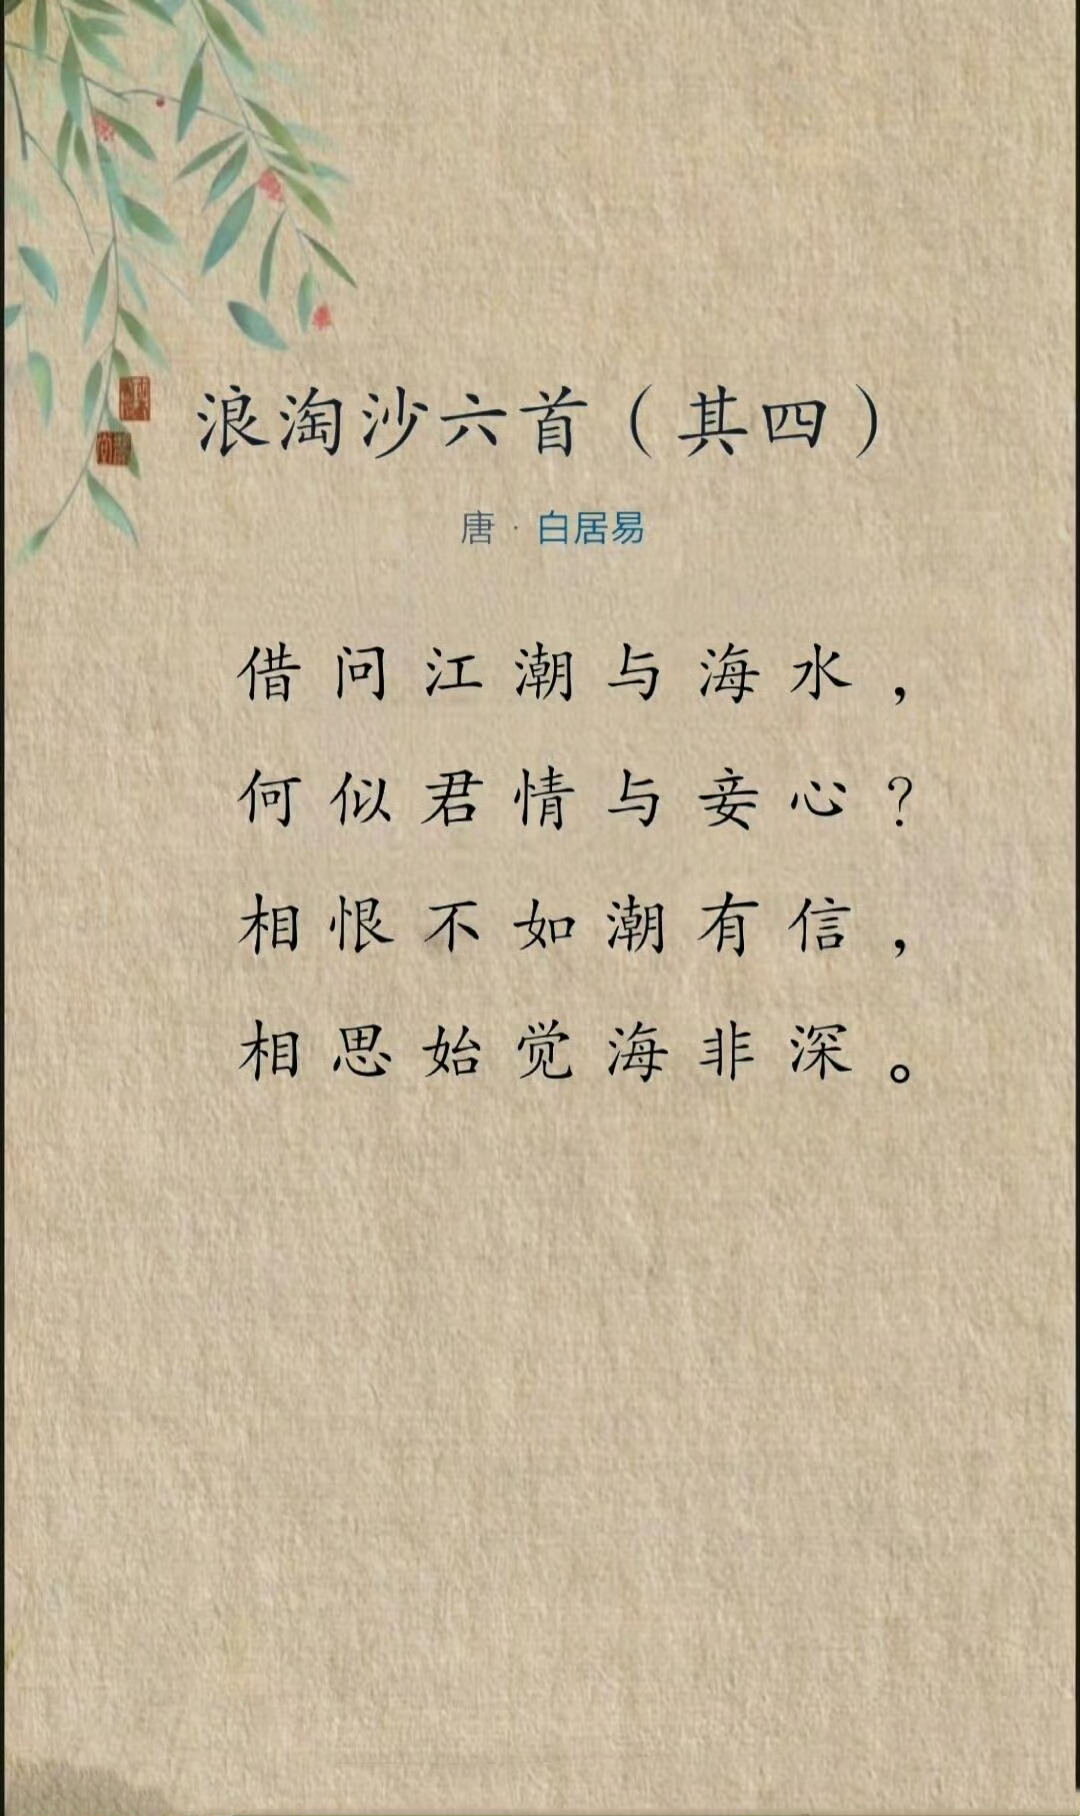 浪淘沙六首（其四）
唐·白居易
借问江潮与海水，
何似君情与妾心？
相恨不如潮有信，
相思始觉海非深。